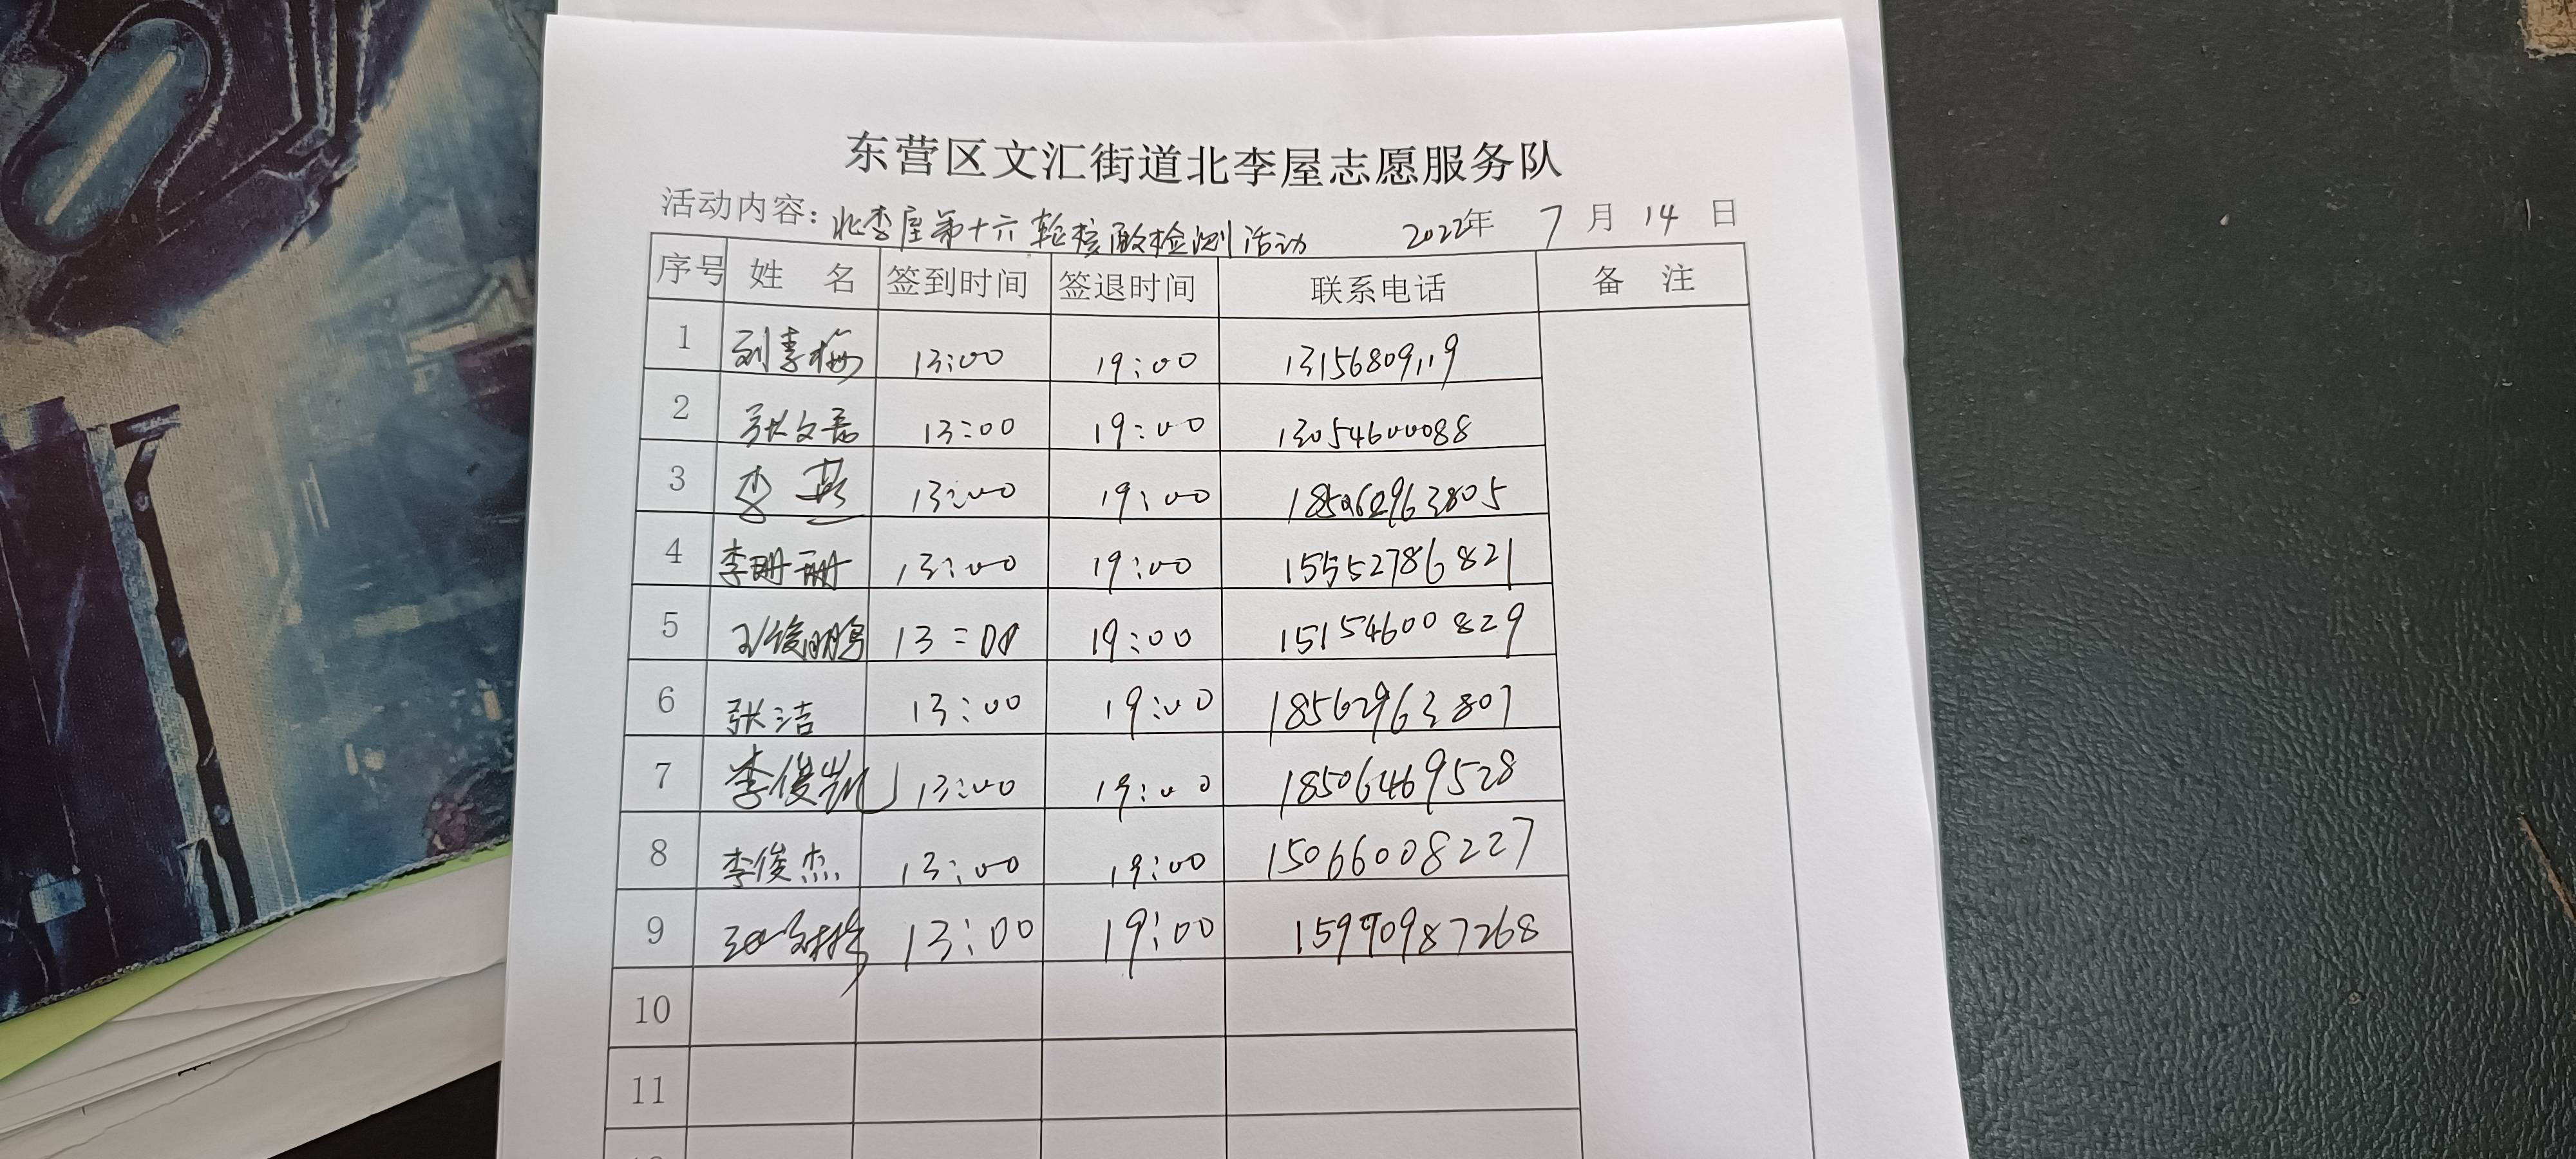 东营区文汇街道北李屋志愿服务队
活动内容: 北李屋第十六轮核酸检测活动 2022年 7 月 14 日
序号 姓 名 签到时间 签退时间 联系电话 备 注
1 刘李梅 13:00 19:00 13156809119
2 张文 13:00 19:00 13054600088
3 李燕 13:00 19:00
4 李珊珊 13:00 19:00 15552786821
5 13:00 19:00 15154600829
6 张洁 13:00 19:00 18562963807
7 李俊凯 13:00 19:00 18506469528
8 李俊杰 13:00 19:00 15066008227
9 13:00 19:00 15990987268
10
11